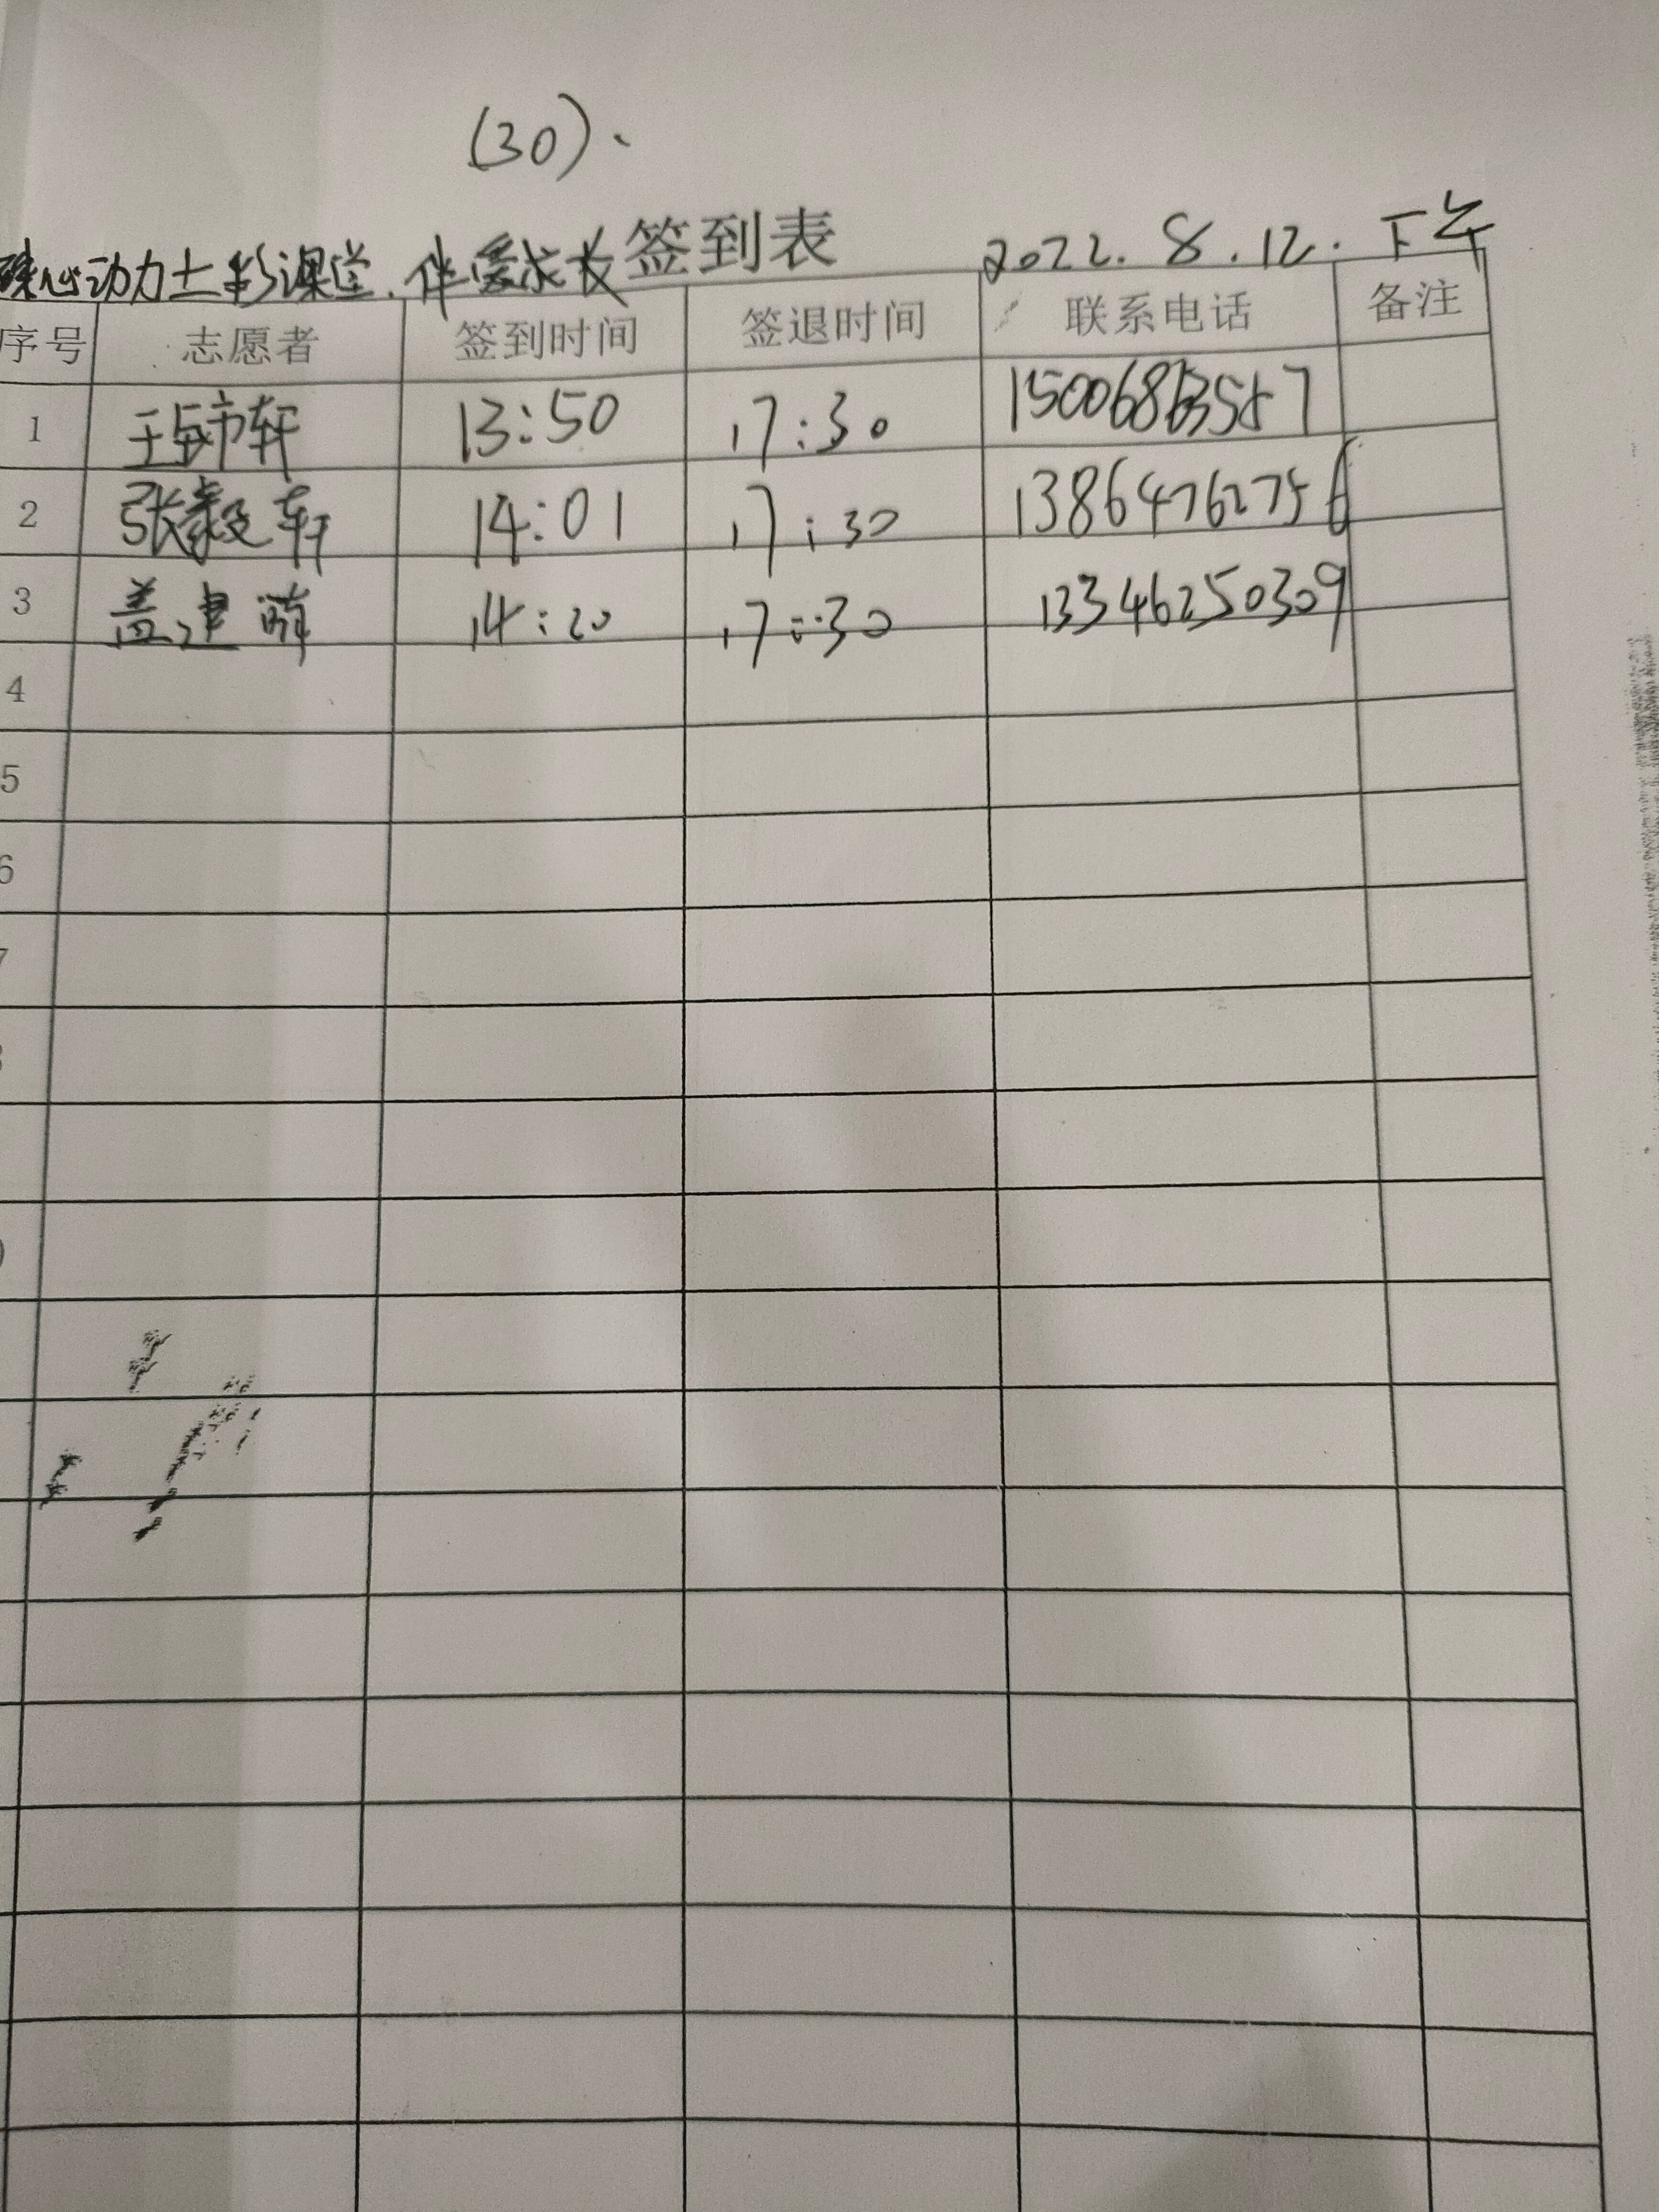 (30).
动力 课堂.伴爱成长签到表 2022.8.12.下午
序号 志愿者 签到时间 签退时间 联系电话 备注
1 13:50 17:30
2 张毅轩 14:01 17:30 13864762756
3 盖建 14:20 17:30 13346250309
4
5
6